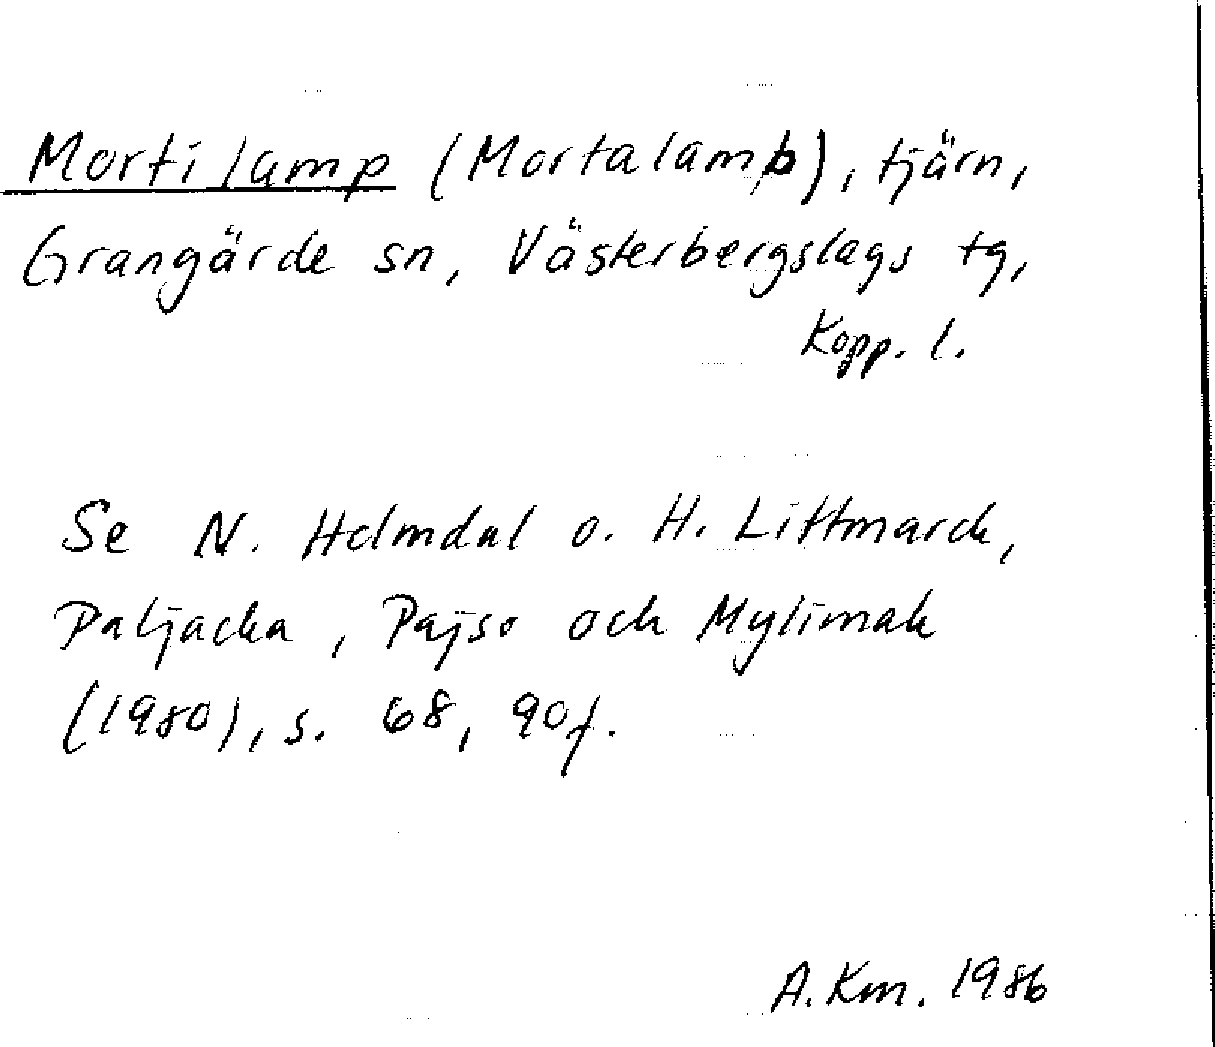 Mortilamp (Mortalamp), tjärn,
Grangärde sn, Västerbergslags tg,
Kopp. l.
Se N. Holmdal o. H. Littmarck,
Paljacka, Pajso och Mylimak
(1980), s. 68, 90f.
A. Km. 1986